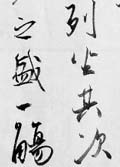 列坐其次
之盛一觴